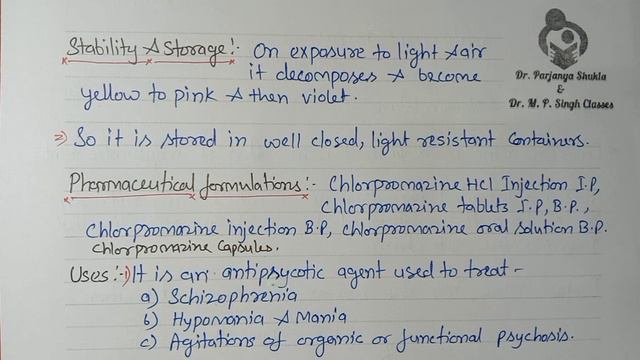 Stability & Storage:- On exposure to light & air
it decomposes & become
yellow to pink & then violet.
Dr. Parjanya Shukla
&
Dr. M. P. Singh Classes
2) So it is stored in well closed, light resistant containers.
Pharmaceutical formulations:- Chlorpromazine HCl Injection I.P,
Chlorpromazine tablets I.P, B.P.,
Chlorpromazine injection B.P, chlorpromazine oral solution B.P.
Chlorpromazine Capsules.
Uses:-1) It is an antipsycotic agent used to treat -
a) Schizophrenia
b) Hypomania & Mania
c) Agitations of organic or functional psychosis.